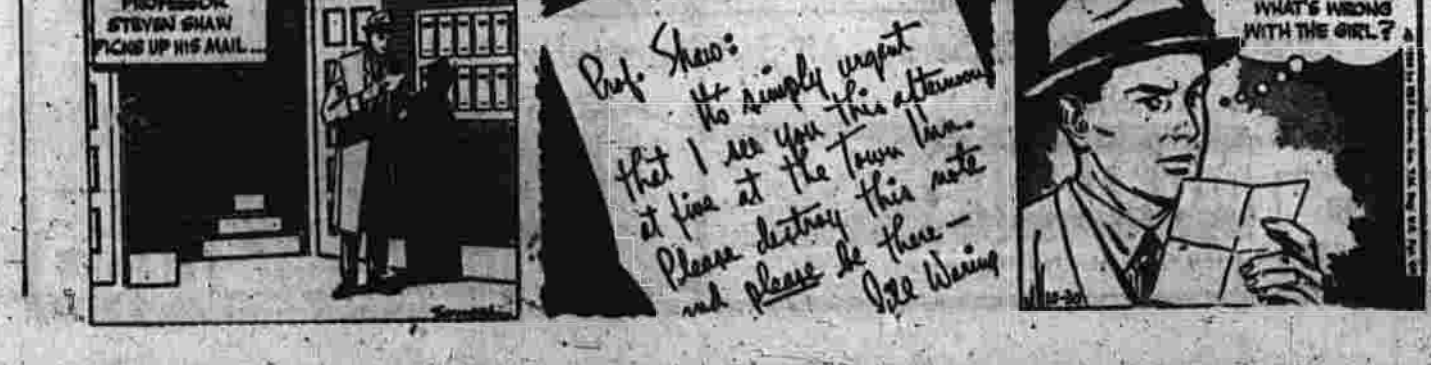 PROFESSOR
STEVEN SHAW
PICKS UP HIS MAIL...
Prof. Shaw:
It's simply urgent
that I see you this afternoon
at five at the Town Inn.
Please destroy this note
and please be there—
Jill Waring
WHAT'S WRONG
WITH THE GIRL?
10-30